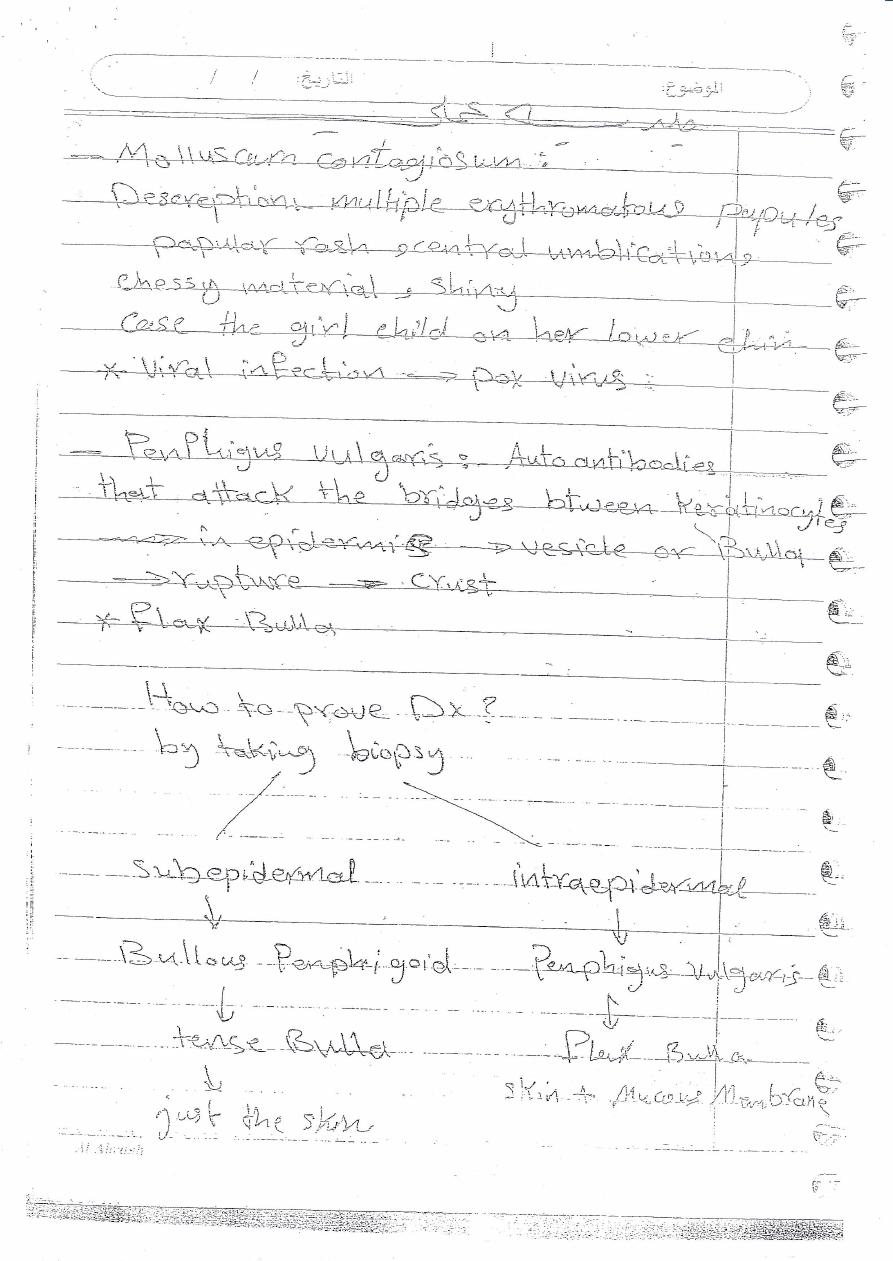 الموضوع: التاريخ: / /
— Molluscum contagiosum :
Descreiption: multiple erythromatous papules
papular rash central umblication,
chessy material , shiny
Case the girl child on her lower chin
* Viral infection → pox virus :
— PenPhigus vulgaris : Autoantibodies
that attack the bridges btween keratinocytes
→ in epidermis → vesicle or Bulla
→ rupture → crust
* Flax Bulla
How to prove Dx ?
by taking biopsy
Subepidermal intraepidermal
↓ ↓
Bullous Penphigoid Penphigus Vulgaris
↓ ↓
tense Bulla Flax Bulla
↓ skin + Mucous Manbrane
just the skin